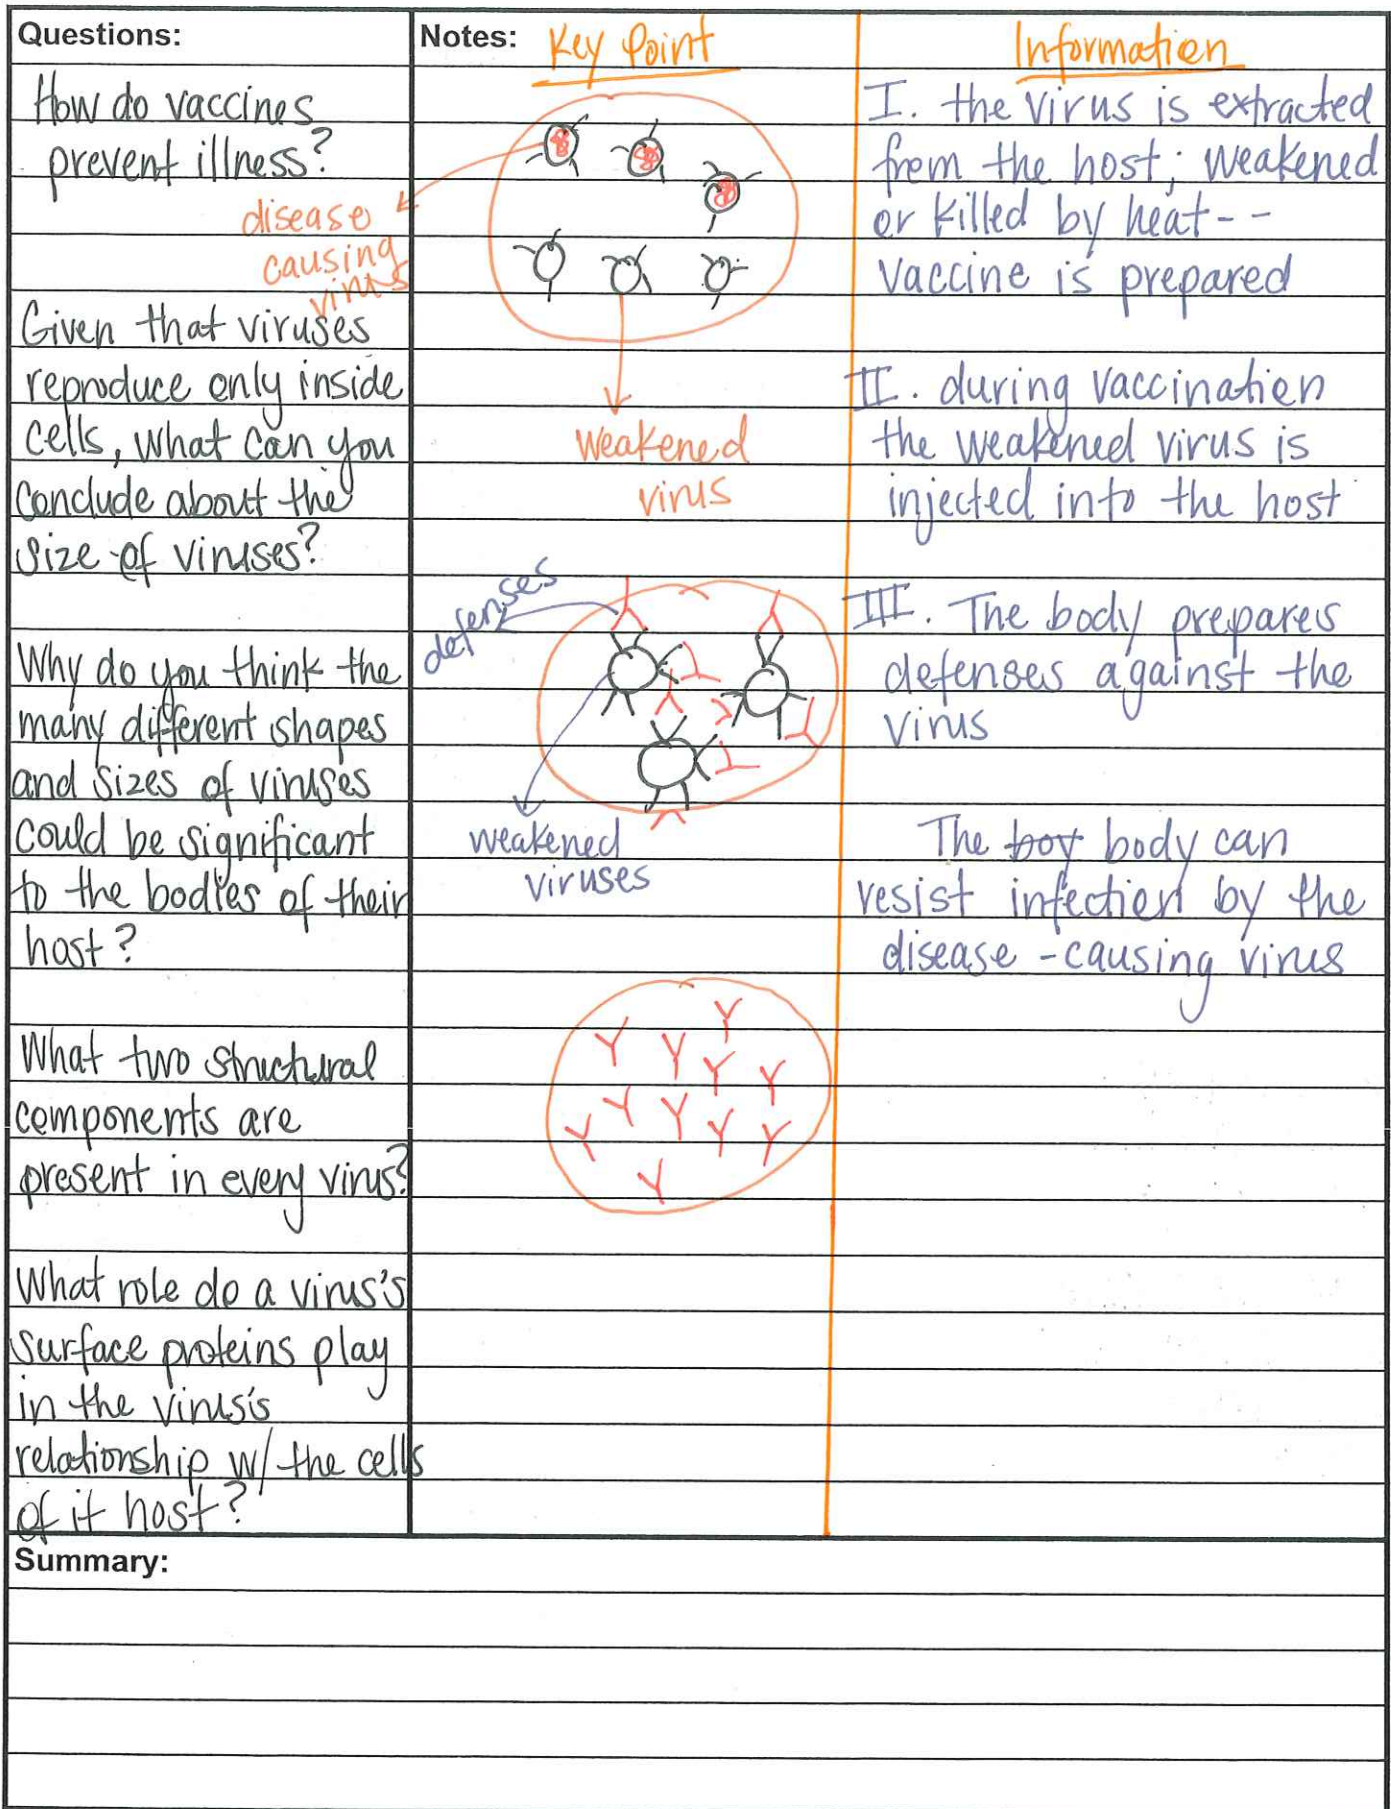 Questions:
How do vaccines
prevent illness?
Given that viruses
reproduce only inside
cells, what can you
conclude about the
size of viruses?
Why do you think the
many different shapes
and sizes of viruses
could be significant
to the bodies of their
host?
What two structural
components are
present in every virus?
What role do a virus's
surface proteins play
in the virus's
relationship w/ the cells
of it host?
Notes:
Key Point
disease
causing
virus
weakened
virus
defenses
weakened
viruses
Information
I. the virus is extracted
from the host; weakened
or killed by heat--
vaccine is prepared
II. during vaccination
the weakened virus is
injected into the host
III. The body prepares
defenses against the
virus
The boy body can
resist infection by the
disease-causing virus
Summary: